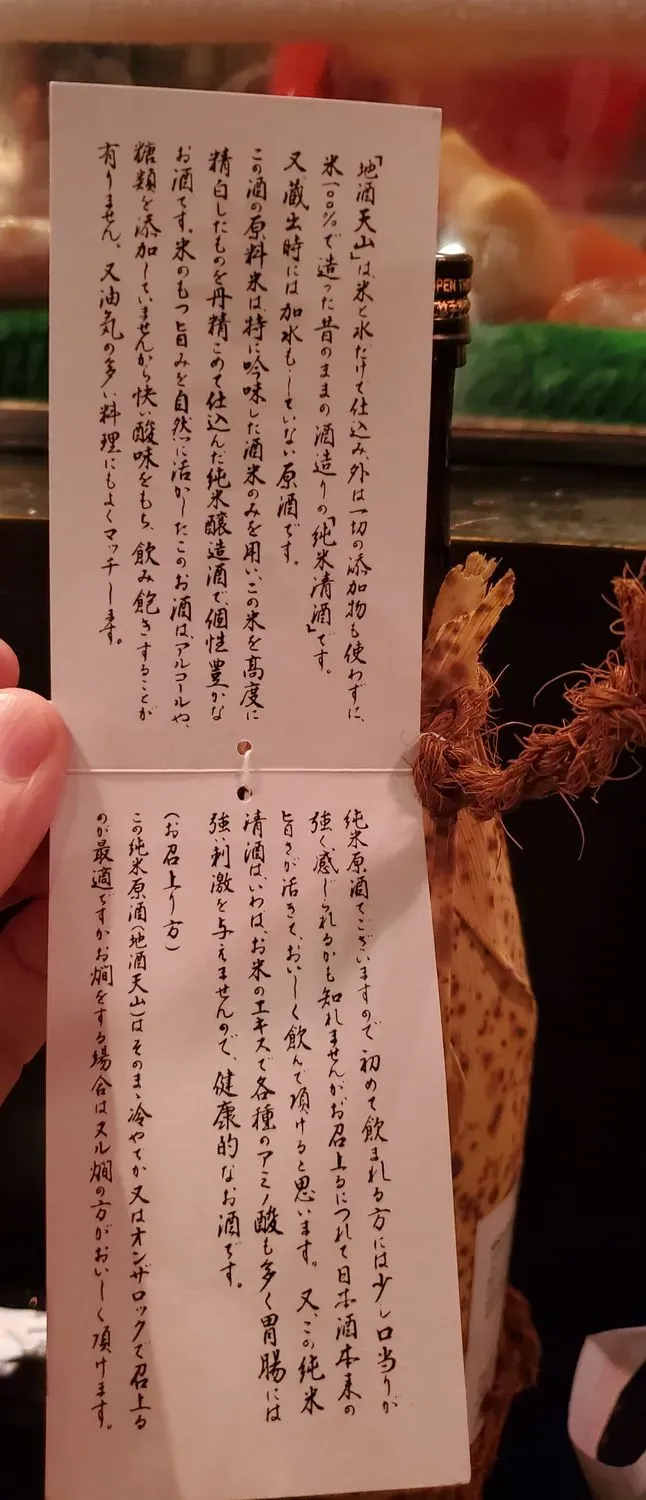 「地酒天山」は、米と水だけで仕込み、外は一切の添加物も使わずに、
米一〇〇％で造った昔のままの酒造りの「純米清酒」です。
又、蔵出時には加水もしていない原酒です。
この酒の原料米は、特に吟味した酒米のみを用い、この米を高度に
精白したものを丹精こめて仕込んだ純米醸造酒で、個性豊かな
お酒です。米のもつ旨みを自然に活かしたこのお酒は、アルコールや、
糖類を添加していませんから快い酸味をもち、飲み飽きすることが
有りません。又油気の多い料理にもよくマッチします。
純米原酒でございますので初めて飲まれる方には少し口当りが
強く、感じられるかも知れませんがお召上るにつれて日本酒本来の
旨さが活きて、おいしく飲んで頂けると思います。又、この純米
清酒は、いわば、お米のエキスで各種のアミノ酸も多く胃腸には
強い刺激を与えませんので、健康的なお酒です。
(お召上り方)
この純米原酒(地酒天山)はそのまゝ冷やでか又はオンザロックで召上る
のが最適ですがお燗をする場合はヌル燗の方がおいしく頂けます。
OPEN